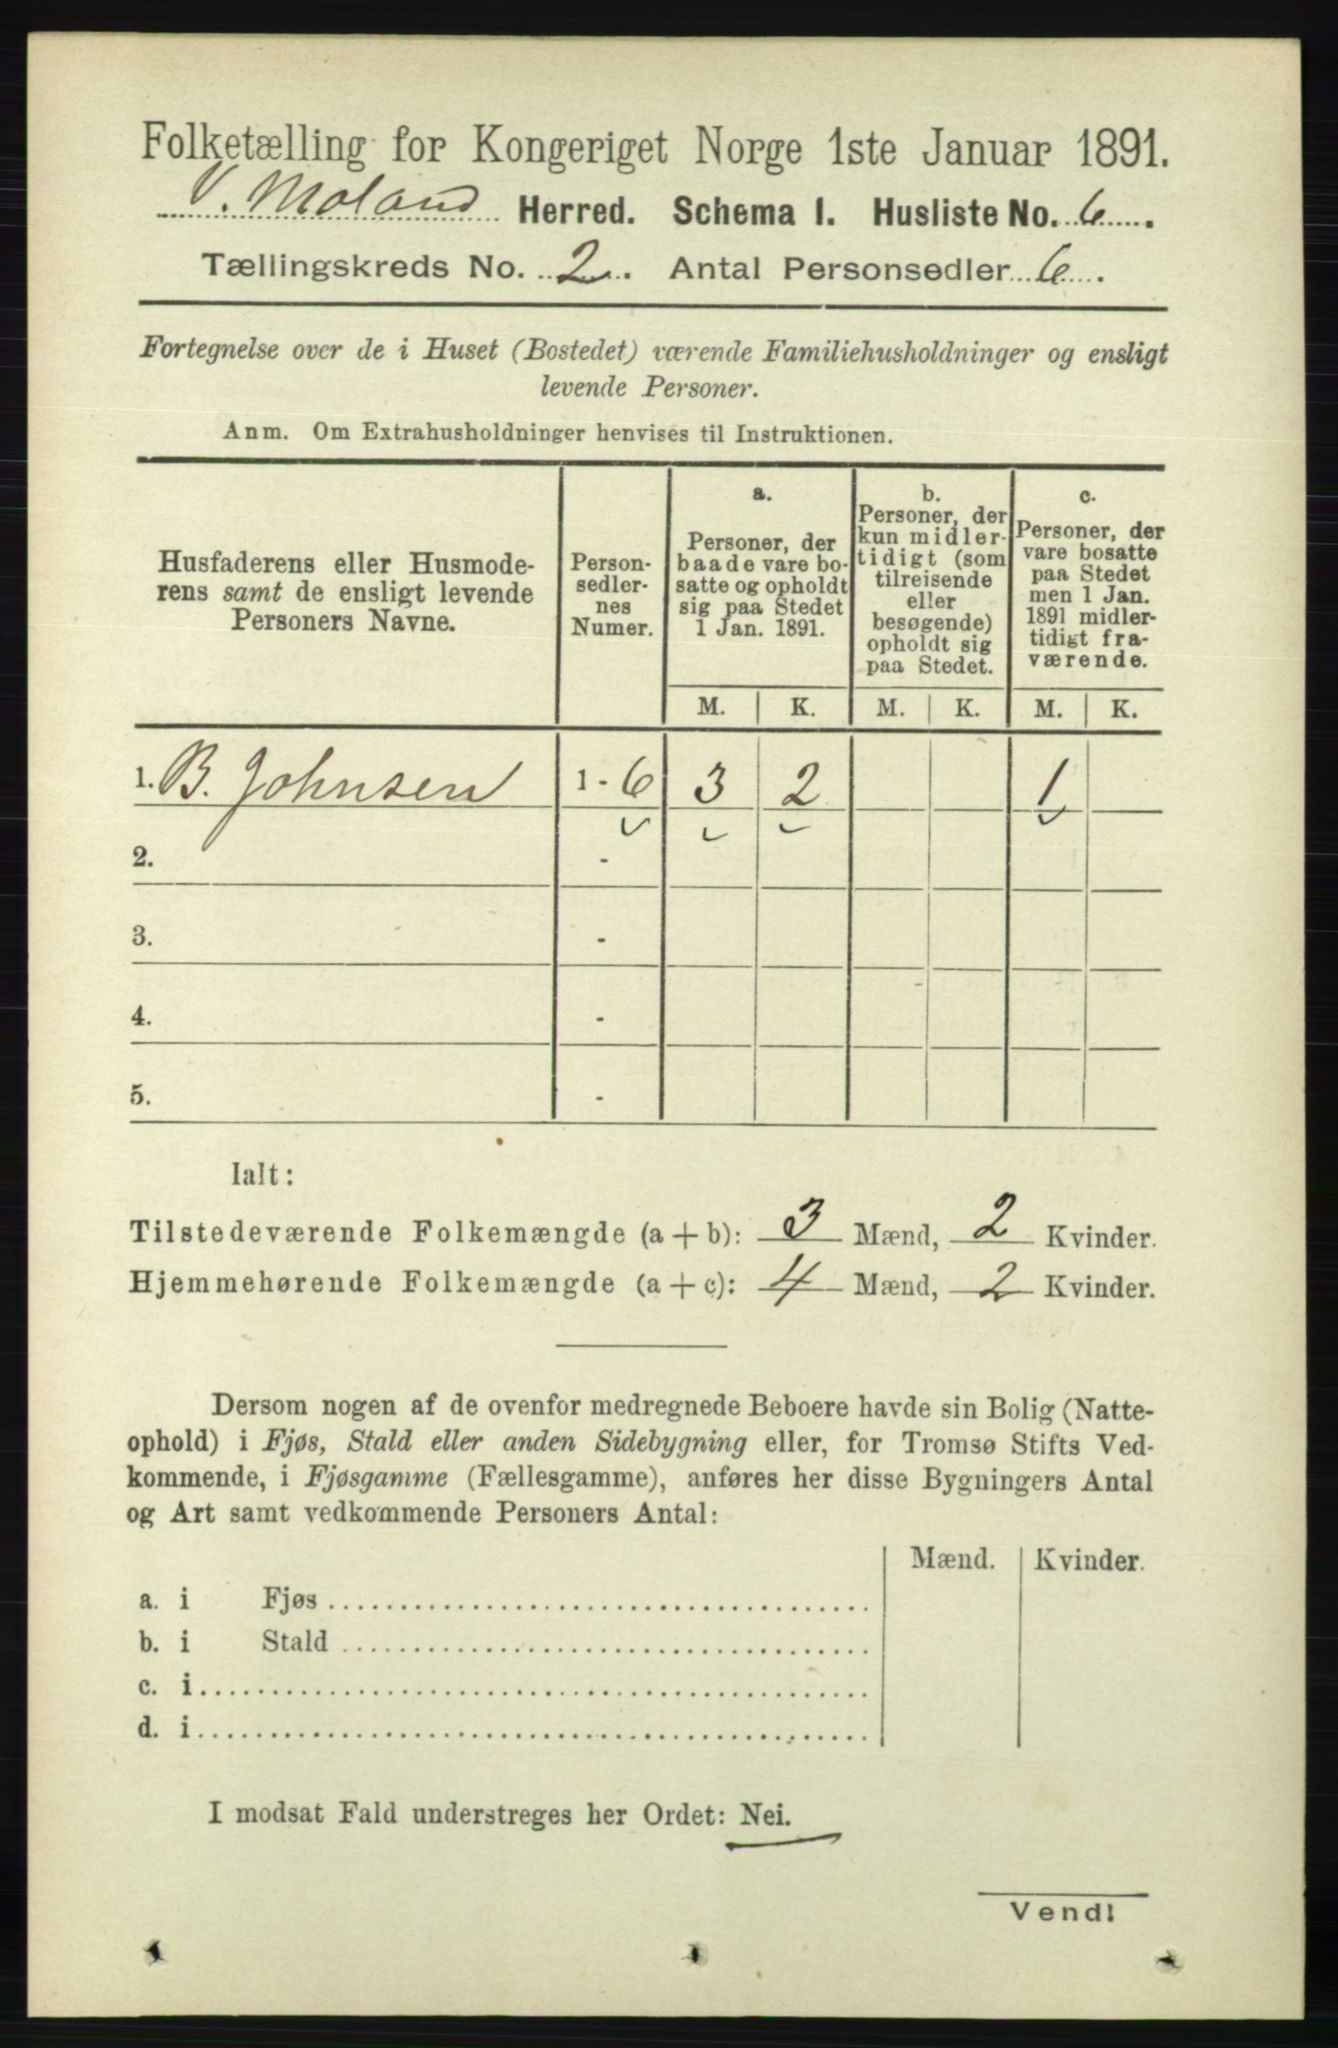 Folketælling for Kongeriget Norge 1ste Januar 1891.
V. Moland Herred. Schema I. Husliste No. 6.
Tællingskreds No. 2. Antal Personsedler 6.
Fortegnelse over de i Huset (Bostedet) værende Familiehusholdninger og ensligt
levende Personer.
Anm. Om Extrahusholdninger henvises til Instruktionen.
Husfaderens eller Husmode-
rens samt de ensligt levende
Personers Navne.
Person-
sedler-
nes
Numer.
a.
Personer, der
baade vare bo-
satte og opholdt
sig paa Stedet
1 Jan. 1891.
b.
Personer, der
kun midler-
tidigt (som
tilreisende
eller
besøgende)
opholdt sig
paa Stedet.
c.
Personer, der
vare bosatte
paa Stedet
men 1 Jan.
1891 midler-
tidigt fra-
værende.
M. K. M. K. M. K.
1. B. Johnsen 1 - 6 3 2 1
2. -
3. -
4. -
5. -
Ialt:
Tilstedeværende Folkemængde (a + b): 3 Mænd, 2 Kvinder.
Hjemmehørende Folkemængde (a + c): 4 Mænd, 2 Kvinder.
Dersom nogen af de ovenfor medregnede Beboere havde sin Bolig (Natte-
ophold) i Fjøs, Stald eller anden Sidebygning eller, for Tromsø Stifts Ved-
kommende, i Fjøsgamme (Fællesgamme), anføres her disse Bygningers Antal
og Art samt vedkommende Personers Antal:
Mænd. Kvinder.
a. i Fjøs
b. i Stald
c. i
d. i
I modsat Fald understreges her Ordet: Nei.
Vend!